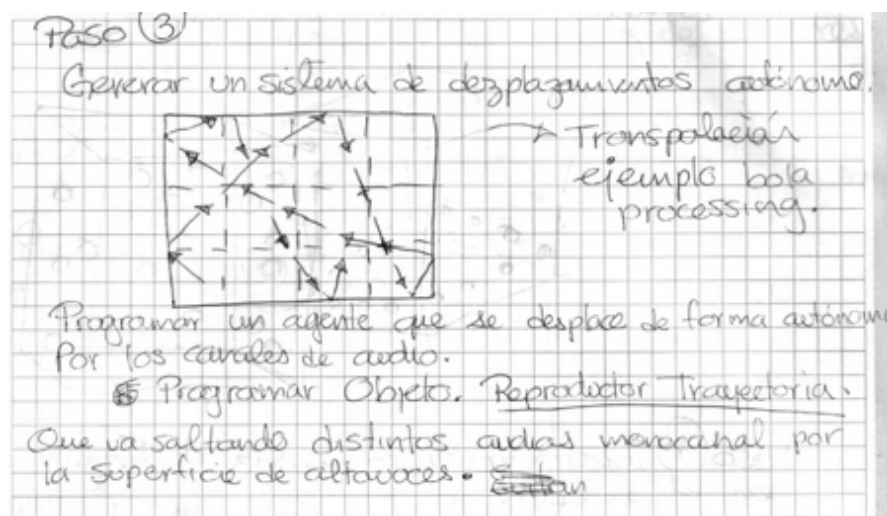 Paso ③
Generar un sistema de dezplazamientos autónomo.
Transpolación
ejemplo bola
processing.
Programar un agente que se desplace de forma autónoma
Por los canales de audio.
Programar Objeto. Reproductor Trayectoria.
Que va saltando distintos audios monocanal por
la superficie de altavoces.